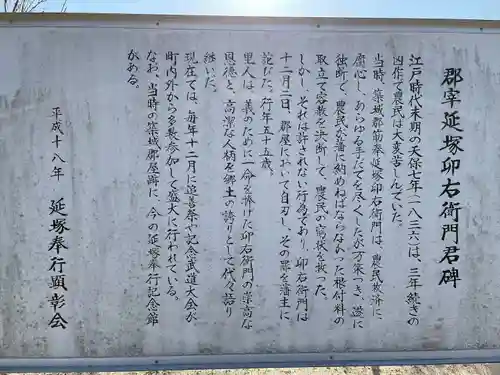 郡宰延塚卯右衛門君碑
江戸時代末期の天保七年(一八三六)は、三年続きの
凶作で農民は大変苦しんでいた。
当時、築城郡筋奉延塚卯右衛門は、農民救済に
腐心し、あらゆる手だてを尽くしたが万策つき、遂に
独断で、農民が藩に納めねばならなかった種付料の
取立て容赦を決断して、農民の窮状を救った。
しかし、それは許されない行為であり、卯右衛門は
十二月二日、郡屋において自刃し、その罪を藩主に
詫びた。行年五十五歳。
里人は、義のために一命を捧げた卯右衛門の崇高な
恩徳と、高潔な人柄を郷土の誇りとして代々語り
継いだ。
現在では、毎年十二月に追善祭や記念武道大会が
町内外から多数参加して盛大に行われている。
なお、当時の築城郡屋跡に、今の延塚奉行記念館
がある。
平成十八年 延塚奉行顕彰会